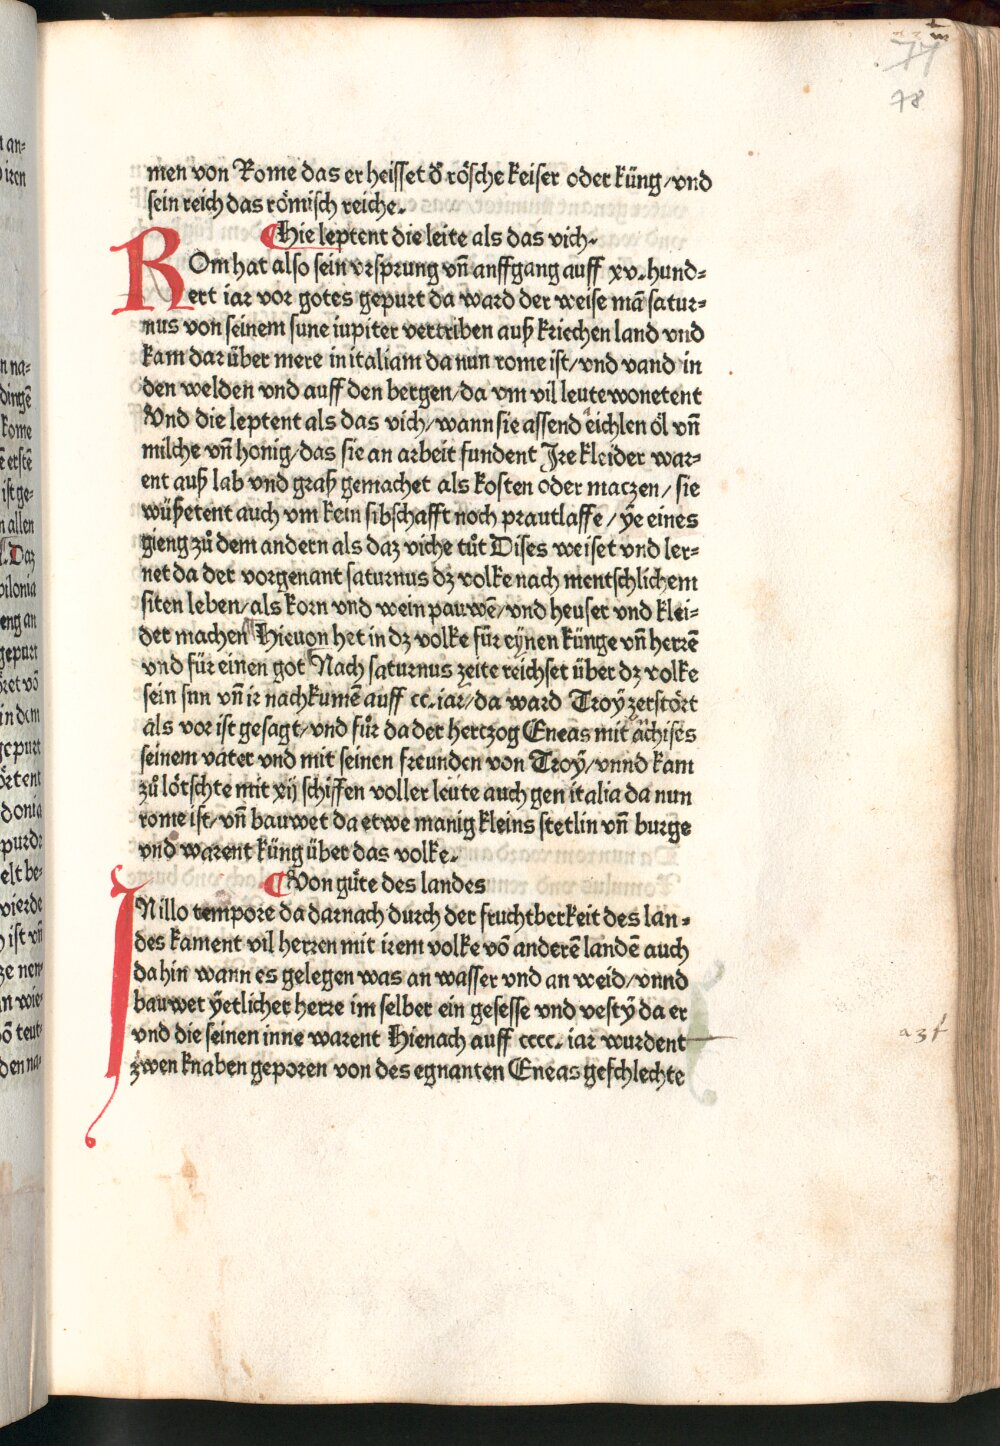 77
78
men von Rome das er heisset d̕ rösche keiser oder küng/vnd
sein reich das römisch reiche.
Hie leptent die leite als das vich.
ROm hat also sein vrsprung vn̄ anffgang auff xv. hund⸗
ert iar vor gotes gepurt da ward der weise mā satur⸗
nus von seinem sune iupiter vertriben auß kriechen land vnd
kam dar über mere in italiam da nun rome ist/vnd vand in
den welden vnd auff den bergen/da vm vil leute wonetent
Vnd die leptent als das vich/wann sie assend eichlen öl vn̄
milche vn̄ honig/das sie an arbeit fundent Jre kleider war⸗
ent auß lab vnd graß gemachet als kosten oder maczen/sie
wüßetent auch vm kein sibschafft noch prautlaffe/ye eines
gieng zů dem andern als daz viche tůt Dises weiset vnd ler⸗
net da der vorgenant saturnus dz volke nach mentschlichem
siten leben/als korn vnd wein pauwē/vnd heuser vnd klei⸗
der machen Hieuon het in dz volke für eÿnen künge vn̄ herrē
vnd für einen got Nach saturnus zeite reichset über dz volke
sein snn vn̄ ir nachkumē auff cc. iar/da ward Troÿ zerstört
als vor ist gesagt/vnd fůr da der hertzog Eneas mit āchises
seinem vater vnd mit seinen freunden von Troÿ/vnnd kam
zů lötschte mit xij schiffen voller leute auch gen italia da nun
rome ist/vn̄ bauwet da etwe manig kleins stetlin vn̄ burge
vnd warent küng über das volke.
Von güte des landes
INillo tempore da darnach durch der fruchtberkeit des lan⸗
des kament vil herren mit irem volke vō anderē landē auch
dahin wann es gelegen was an wasser vnd an weid/vnnd
bauwet ÿetlicher herre im selber ein gesesse vnd vestÿ da er
vnd die seinen inne warent Hienach auff cccc. iar wurdent
zwen knaben geporen von des egnanten Eneas geschlechte